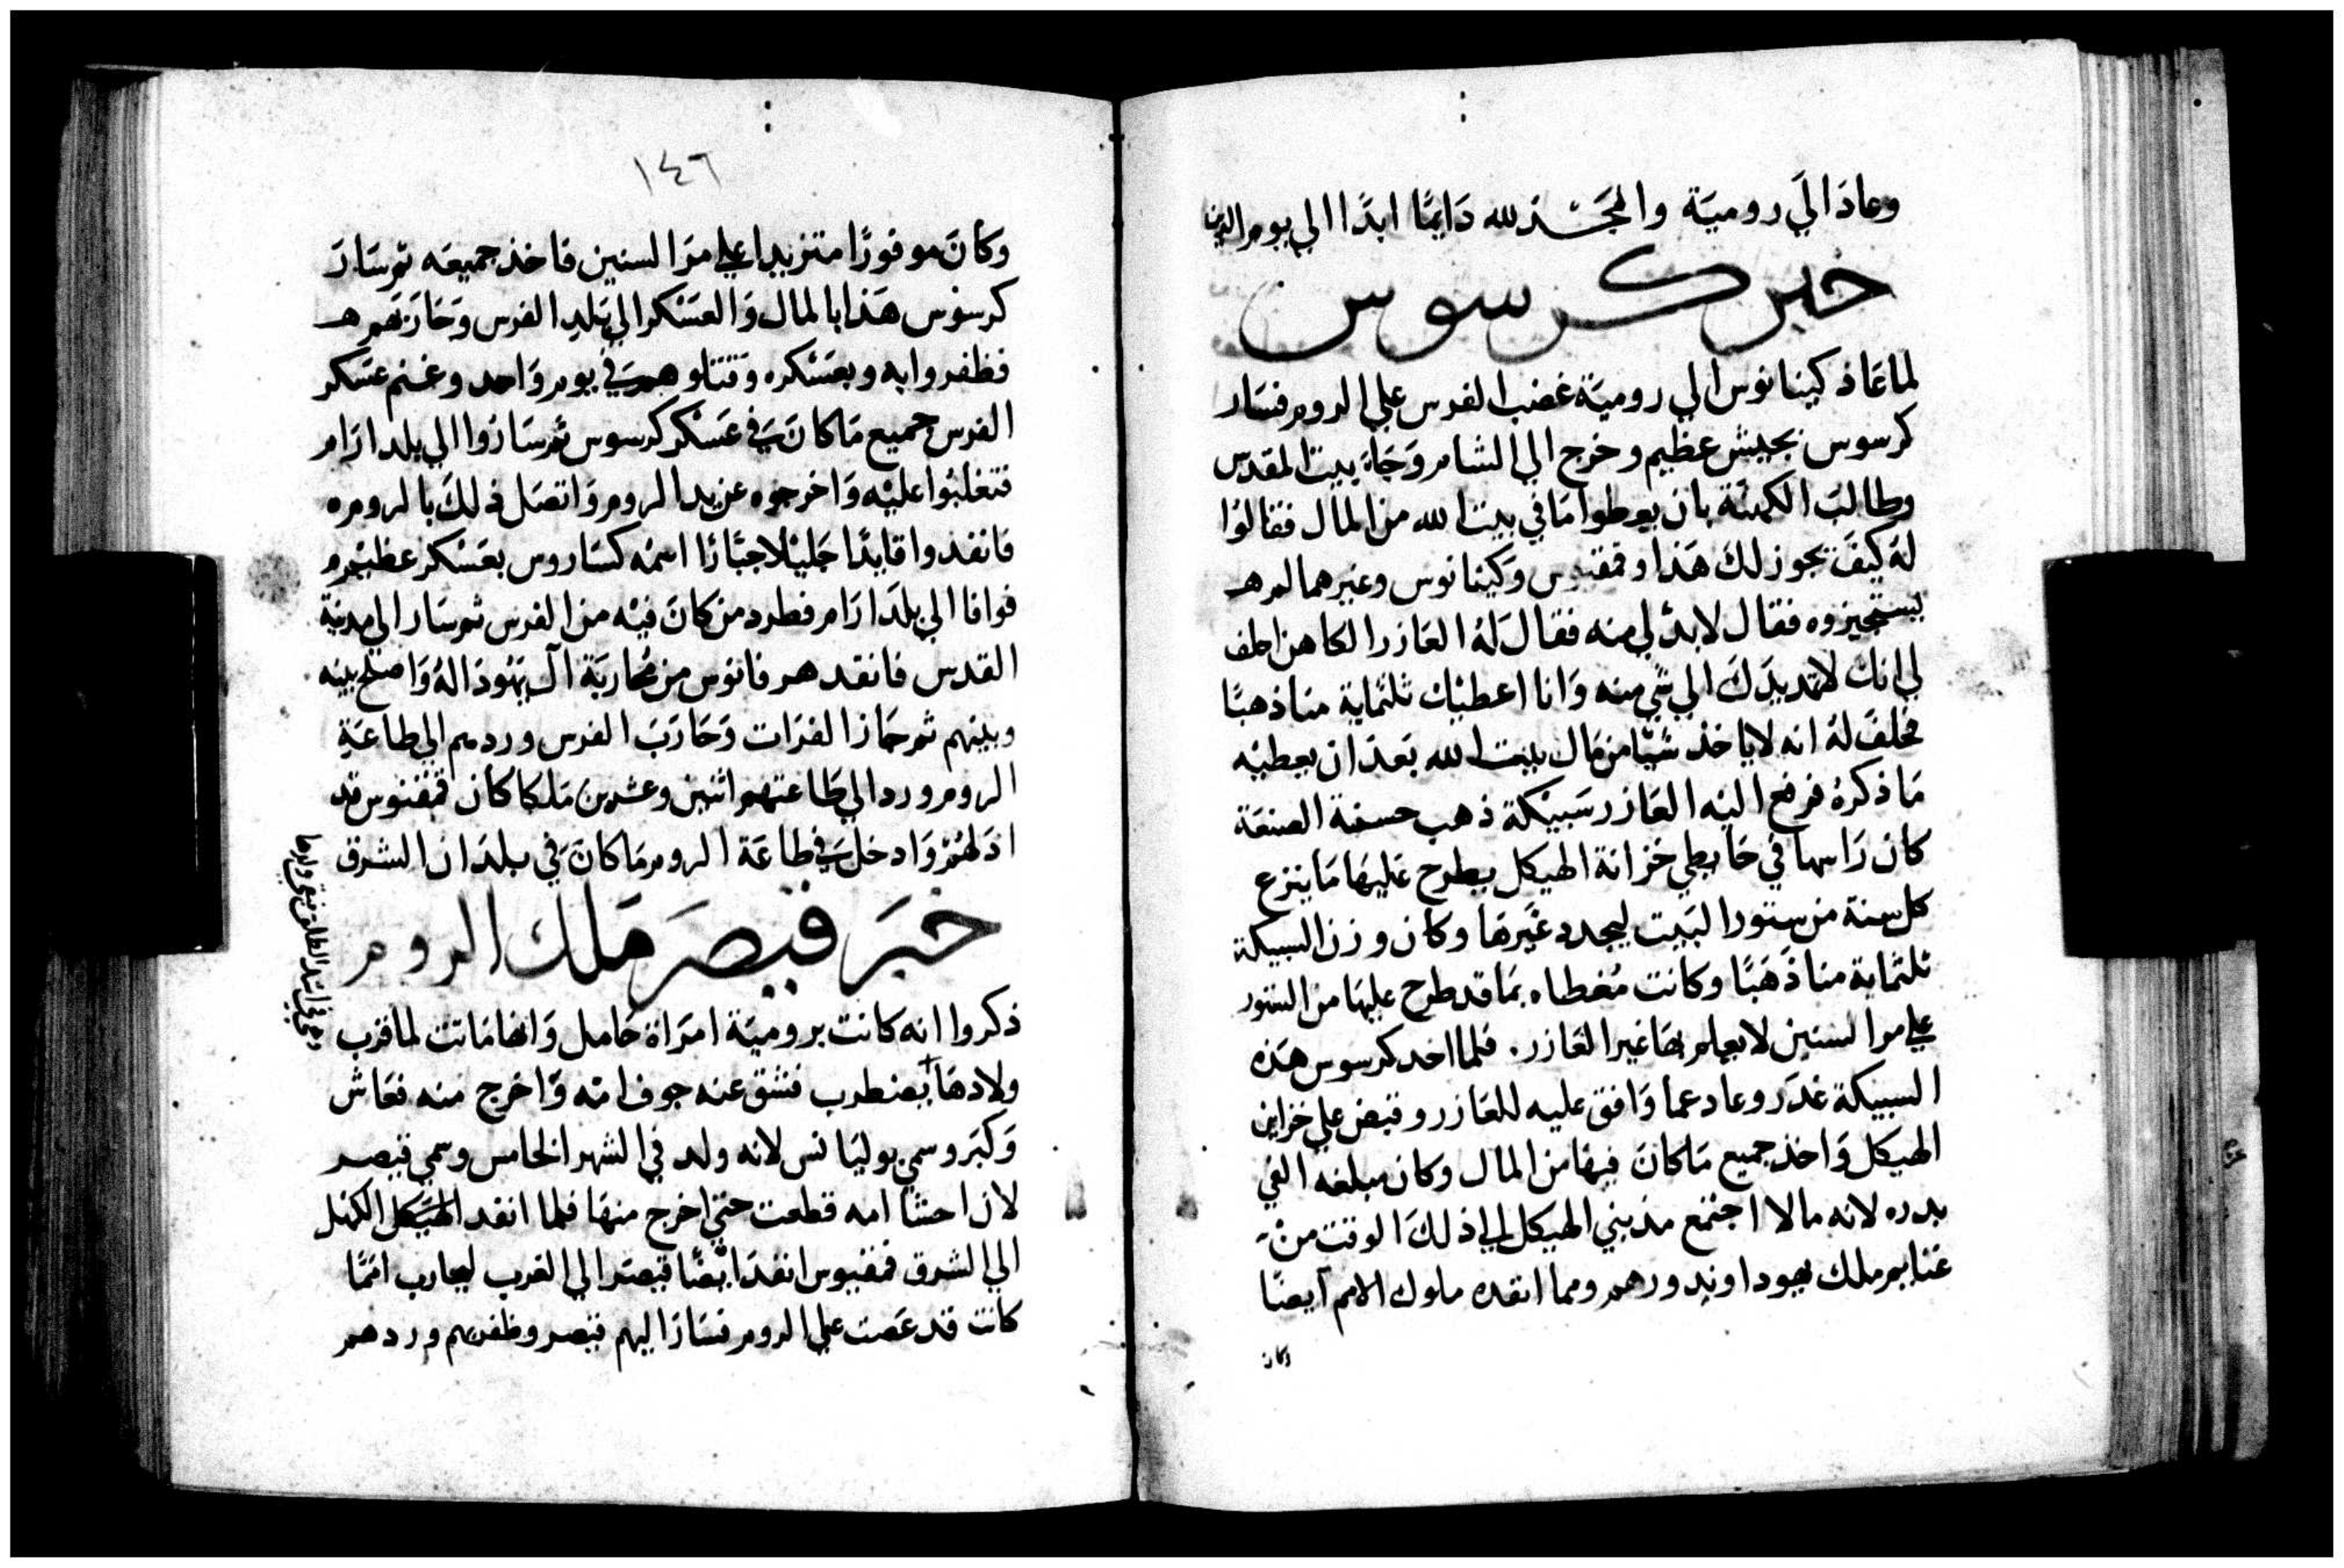 وعادَ الَي روميَة والمجَد لله دَايمًا ابدًا الي يوم الدين
خبر كرسوس
لما عَاد كينانوس الي روميَة غضب الفرس علي الروم فسَار
كرسوس بجيش عظيم وخرج الي الشام وَجَاء بيت المقدس
وطالبَ الكهنَة بان يعطوا مَا في بيت الله من المال فقالوُا
لهُ كيفَ يجوز لكَ هَذا وفمقيوس وَكينانوس وغيرهما لم
يستجيزوه فقال لابدّ لي منه فقالَ لهُ العَازر الكاهن احلف
لي انك لا تمد يدَكَ الي شي منه وَانا اعطيْك ثلثماية منا ذهبًا
فحلفَ لهُ انه لا ياخذ شيًا من مَال بيت الله بَعدَ ان يعطيْه
مَا ذكرهُ فرفع اليْه العَازر سَبيْكة ذهب حسنة الصنعَة
كان رَاسها في حَايطي خزانة الهيكل يطرح عَليهَا مَا ينزع
كل سنة من ستور البَيت ليجدد غَيرهَا وكان وزن السبيكة
ثلثماية منا ذَهَبًا وكانت مُغطاه بمَا قد طرح عليهَا من الستور
علي مر السنين لا يعلم بهَا غير العَازر. فلما اخد كرسوس هَذه
السبيكة غدَر وعاد عما وَافق عليه للعَازر وقبض علي خزاين
الهيكل وَاخذ جميع مَا كانَ فيهَا من المال وكان مبلغهُ الفي
بدره لانه مالا اجتمع مذ بني الهيكل الي ذلكَ الوقت منْ
غنايم ملك يهودا وندورهم ومما انفده ملوك الامم ايضًا
وكان
١٤٦
وَكانَ موفورًا متزيدا علي مرَ السنين فاخذ جميعَه ثم سَارَ
كرسوس هَذا بالمال وَالعَسْكر الي بَلد الفرس وَحَارَبَهم
فظفروا به وبعَسْكره وَقتلوهم في يوم وَاحد وغنم عَسَكر
الفرس جميع مَا كانَ في عَسْكر كرسوس ثم سَارُوا الي بلد ارَام
فتغلبُوا عليْه وَاخرجوه عن يد الروم وَاتصَل ذلكَ بالروم
فانفدوا قايدًا جَليْلا جبَّارًا اسمْه كسَاروس بعَسْكر عظيْم
فوافا الي بلدَ ارَام فطرد من كانَ فيْه من الفرس ثم سَار الي مدينة
القدس فانقد هرقانوس من مُحاربَة آل يَهُودَ الهُ وَاصلح بينه
وبينهم ثم جَاز الفرَات وَحَاربَ الفرس وردهم الي طاعَة
الروم ورد الي طَاعتهم اثنين وعشرين مَلكا كان فمقيوس قد
اذلهُمْ وَادخل في طاعَة الروم مَا كانَ في بلدَان الشرق
خبَر قيصرَ مَلك الروم
ذكروا انه كانت بروميَة امرَاة حَامل وَانهَا مَاتت لما قرب
ولادهَا يضطرب فشق عنه جوف امّه وَاخرج منه فعَاش
وَكبَر وسمي يوليَانس لانه ولد في الشهر الخامس وسمي قيصر
لان احشا امه قطعت حتي اخرج منهَا فلما انفد الهَيَكل الكهل
الي الشرق فمقيوس انفدَ ايْضًا قيصَر الي الغرب ليحارب امَمًا
كانت قد عَصَت علي الروم فسَار اليهم قيصر وظفر بهم وردهم